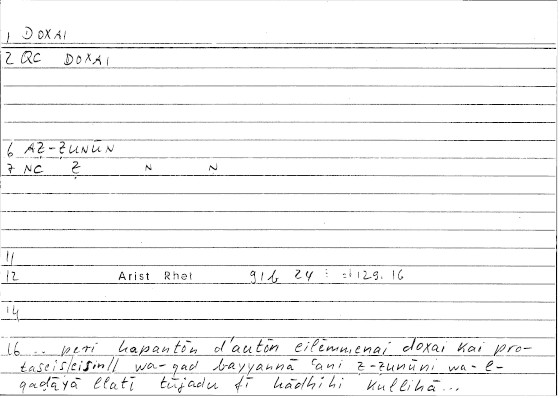 1 DOXAI
2 QC DOXAI
6 AẒ-ẒUNŪN
7 NC Ẓ N N
11
12 Arist Rhet 91b 24 : =129.16
14
16 .. peri hapantōn d'autōn eilēmmenai doxai kai pro-
taseis/eisin// wa-qad bayyannā ʿani ẓ-ẓunūni wa-l-
qaḍāyā llatī tūjadu fī hādhihi kullihā...